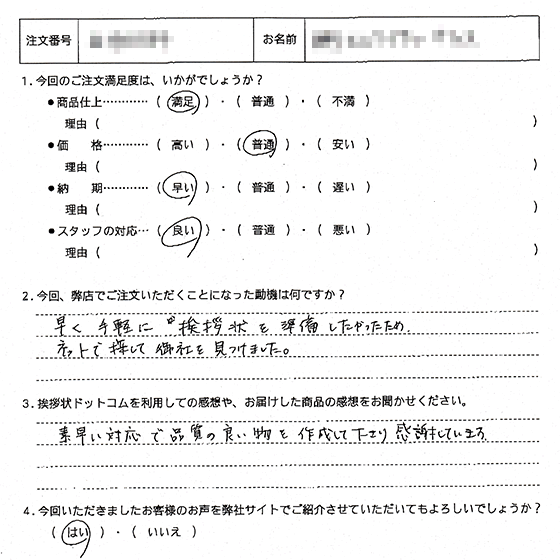 注文番号
お名前
1.今回のご注文満足度は、いかがでしょうか?
●商品仕上…………( 満足 )・( 普通 )・( 不満 )
理由( )
●価 格…………( 高い )・( 普通 )・( 安い )
理由( )
●納 期…………( 早い )・( 普通 )・( 遅い )
理由( )
●スタッフの対応…( 良い )・( 普通 )・( 悪い )
理由( )
2.今回、弊店でご注文いただくことになった動機は何ですか?
早く手軽に挨拶状を準備したかったため
ネットで探して御社を見つけました。
3.挨拶状ドットコムを利用しての感想や、お届けした商品の感想をお聞かせください。
素早い対応で品質の良い物を作成して下さり感謝しています
4.今回いただきましたお客様のお声を弊社サイトでご紹介させていただいてもよろしいでしょうか?
( はい )・( いいえ )